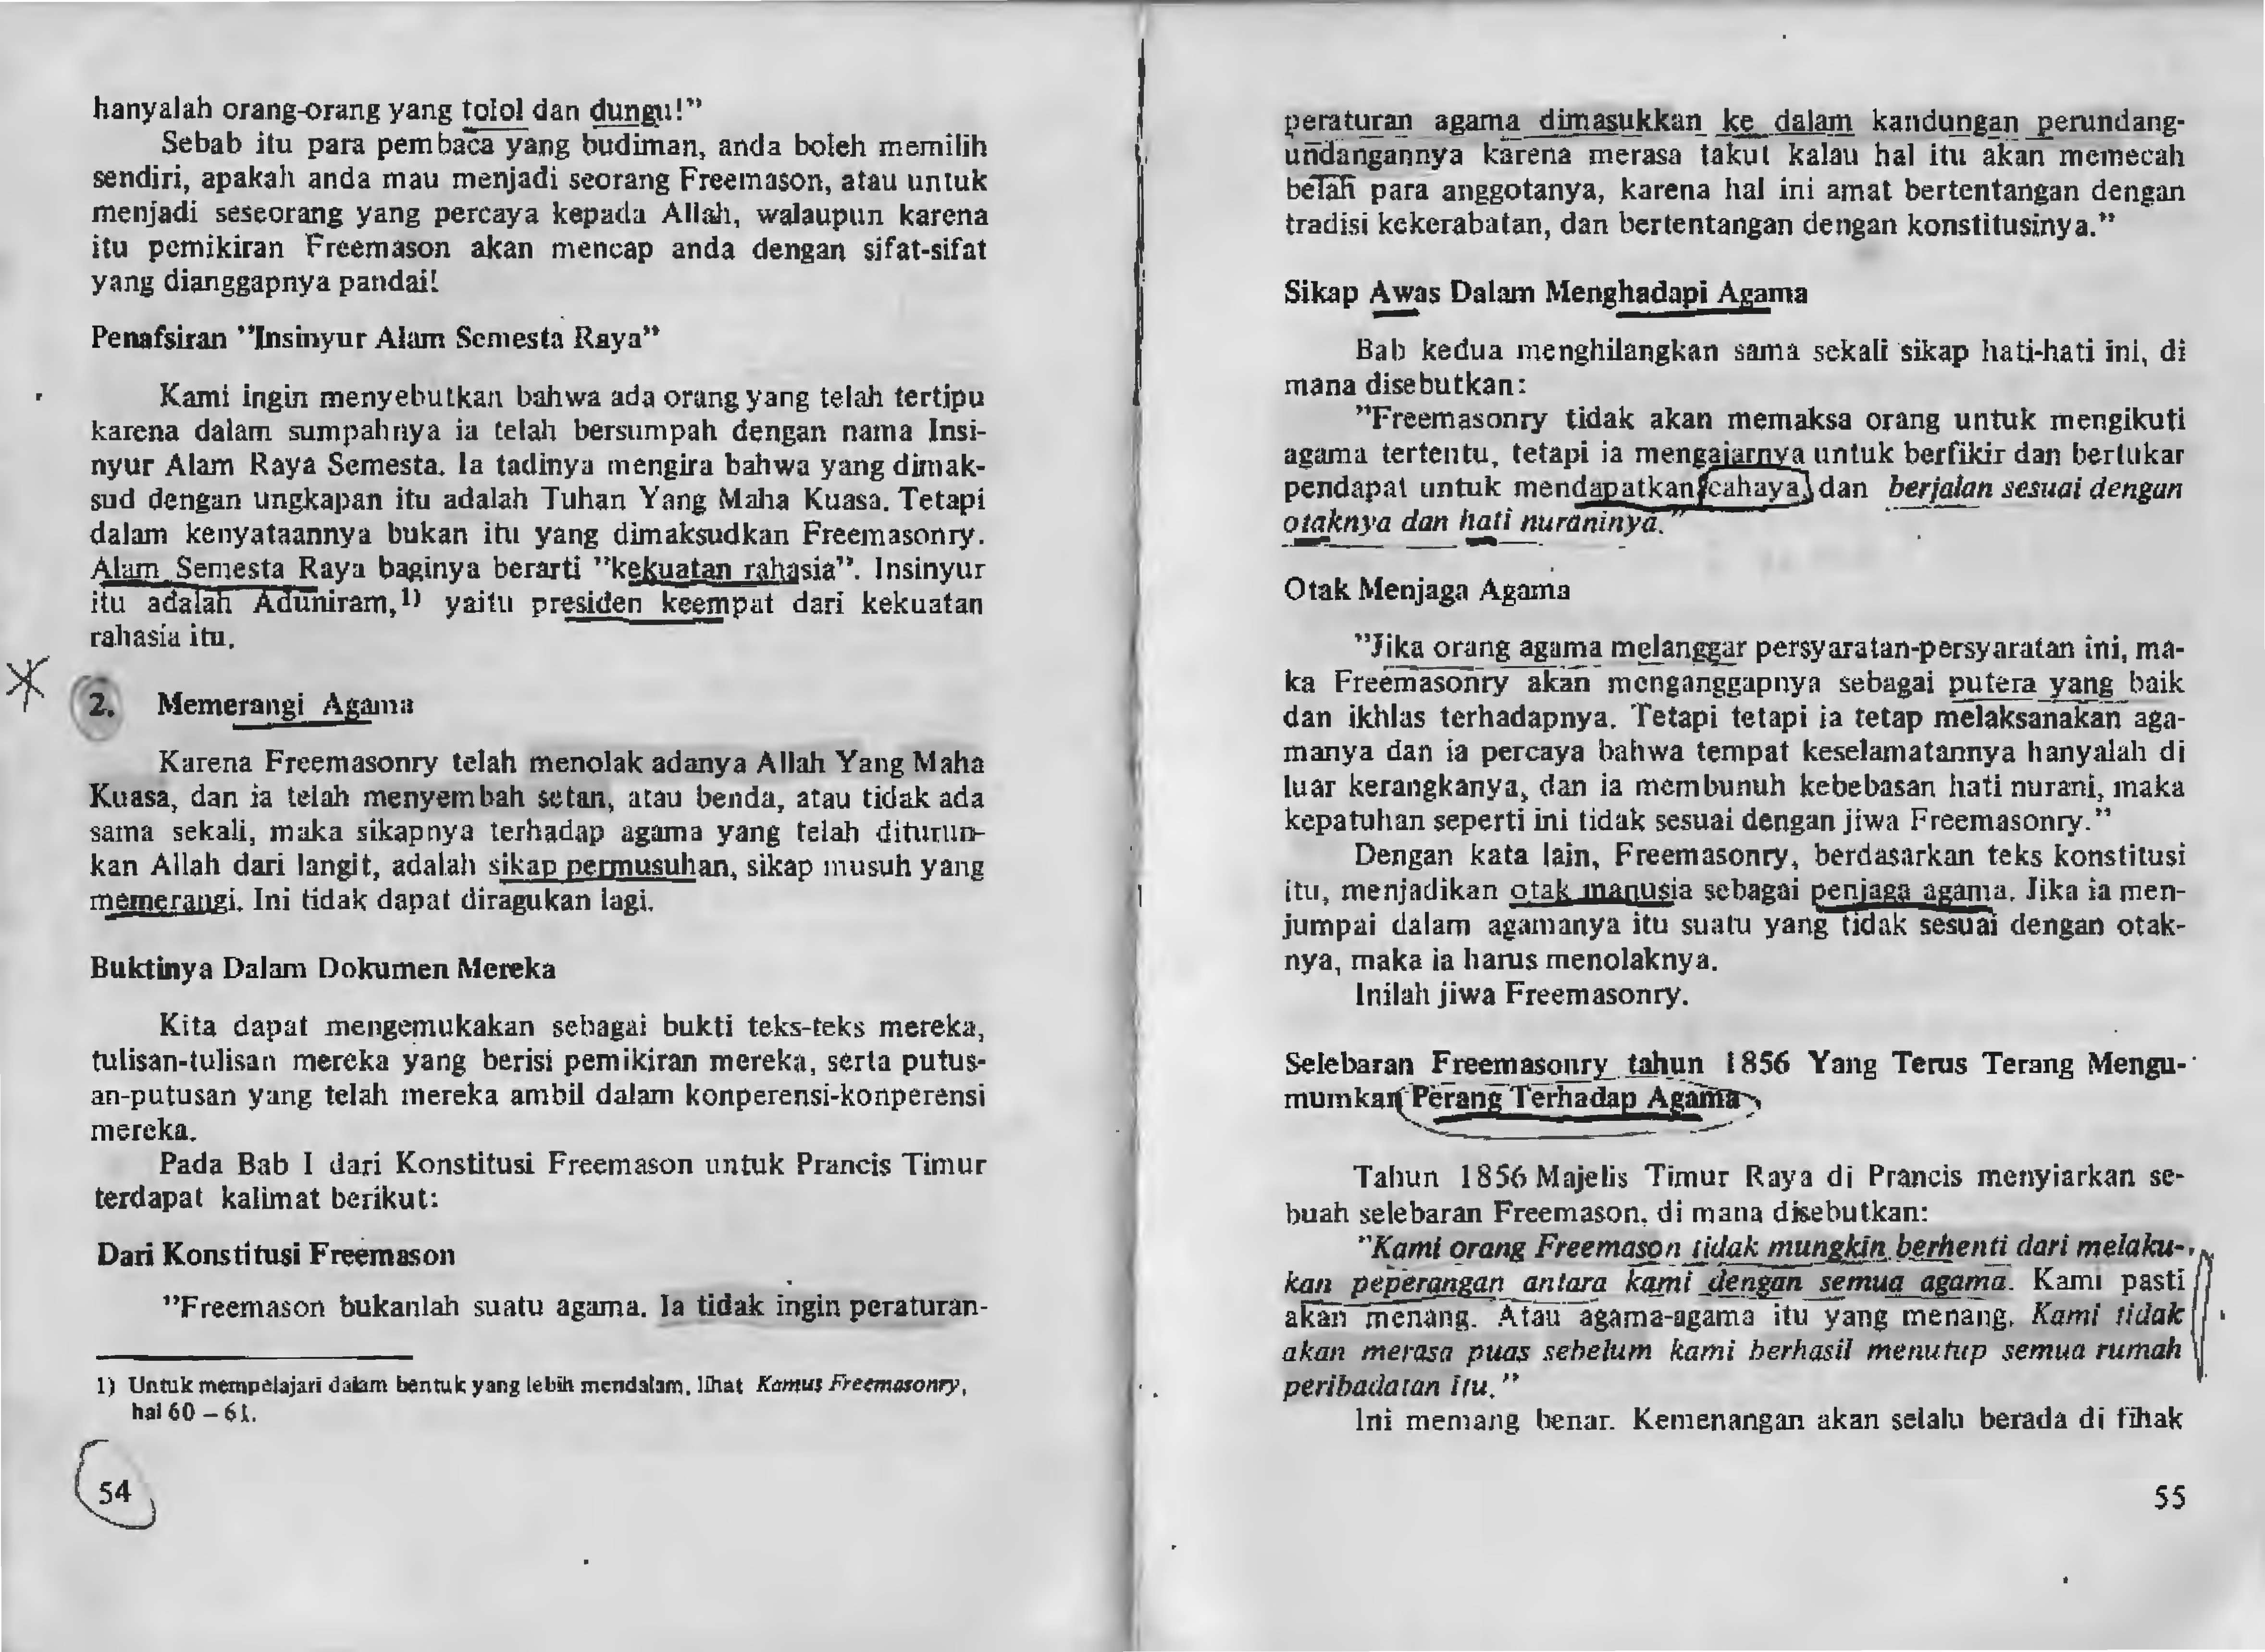 hanyalah orang-orang yang tolol dan dungu!”
Sebab itu para pembaca yang budiman, anda boleh memilih
sendiri, apakah anda mau menjadi seorang Freemason, atau untuk
menjadi seseorang yang percaya kepada Allah, walaupun karena
itu pemikiran Freemason akan mencap anda dengan sifat-sifat
yang dianggapnya pandai!
Penafsiran ”Insinyur Alam Semesta Raya”
Kami ingin menyebutkan bahwa ada orang yang telah tertipu
karena dalam sumpahnya ia telah bersumpah dengan nama Insi-
nyur Alam Raya Semesta. Ia tadinya mengira bahwa yang dimak-
sud dengan ungkapan itu adalah Tuhan Yang Maha Kuasa. Tetapi
dalam kenyataannya bukan itu yang dimaksudkan Freemasonry.
Alam Semesta Raya baginya berarti ”kekuatan rahasia”. Insinyur
itu adalah Aduniram,1) yaitu presiden keempat dari kekuatan
rahasia itu.
2. Memerangi Agama
Karena Freemasonry telah menolak adanya Allah Yang Maha
Kuasa, dan ia telah menyembah setan, atau benda, atau tidak ada
sama sekali, maka sikapnya terhadap agama yang telah diturun-
kan Allah dari langit, adalah sikap permusuhan, sikap musuh yang
memerangi. Ini tidak dapat diragukan lagi.
Buktinya Dalam Dokumen Mereka
Kita dapat mengemukakan sebagai bukti teks-teks mereka,
tulisan-tulisan mereka yang berisi pemikiran mereka, serta putus-
an-putusan yang telah mereka ambil dalam konperensi-konperensi
mereka.
Pada Bab I dari Konstitusi Freemason untuk Prancis Timur
terdapat kalimat berikut:
Dari Konstitusi Freemason
”Freemason bukanlah suatu agama. Ia tidak ingin peraturan-
1) Untuk mempelajari dalam bentuk yang lebih mendalam, lihat Kamus Freemasonry,
hal 60 – 61.
54
peraturan agama dimasukkan ke dalam kandungan perundang-
undangannya karena merasa takut kalau hal itu akan memecah
belah para anggotanya, karena hal ini amat bertentangan dengan
tradisi kekerabatan, dan bertentangan dengan konstitusinya.”
Sikap Awas Dalam Menghadapi Agama
Bab kedua menghilangkan sama sekali sikap hati-hati ini, di
mana disebutkan:
”Freemasonry tidak akan memaksa orang untuk mengikuti
agama tertentu, tetapi ia mengajarnya untuk berfikir dan bertukar
pendapat untuk mendapatkan cahaya, dan berjalan sesuai dengan
otaknya dan hati nuraninya.”
Otak Menjaga Agama
”Jika orang agama melanggar persyaratan-persyaratan ini, ma-
ka Freemasonry akan menganggapnya sebagai putera yang baik
dan ikhlas terhadapnya. Tetapi tetapi ia tetap melaksanakan aga-
manya dan ia percaya bahwa tempat keselamatannya hanyalah di
luar kerangkanya, dan ia membunuh kebebasan hati nurani, maka
kepatuhan seperti ini tidak sesuai dengan jiwa Freemasonry.”
Dengan kata lain, Freemasonry, berdasarkan teks konstitusi
itu, menjadikan otak manusia sebagai penjaga agama. Jika ia men-
jumpai dalam agamanya itu suatu yang tidak sesuai dengan otak-
nya, maka ia harus menolaknya.
Inilah jiwa Freemasonry.
Selebaran Freemasonry tahun 1856 Yang Terus Terang Mengu-
mumkan Perang Terhadap Agama
Tahun 1856 Majelis Timur Raya di Prancis menyiarkan se-
buah selebaran Freemason, di mana disebutkan:
”Kami orang Freemason tidak mungkin berhenti dari melaku-
kan peperangan antara kami dengan semua agama. Kami pasti
akan menang. Atau agama-agama itu yang menang. Kami tidak
akan merasa puas sebelum kami berhasil menutup semua rumah
peribadatan itu.”
Ini memang benar. Kemenangan akan selalu berada di fihak
55